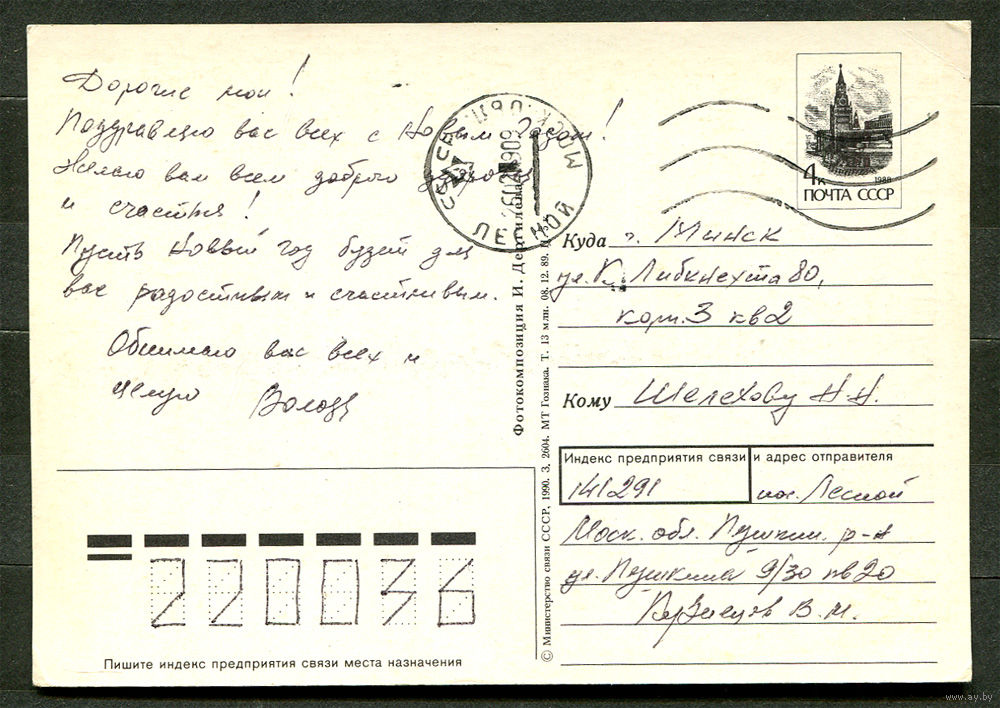 Дорогие мои!
Поздравляю вас всех с Новым Годом!
Желаю вам всем доброго здоровья
и счастья!
Пусть Новый год будет для
вас радостным и счастливым.
Обнимаю вас всех и
целую Володя
ЛЕСНОЙ
Фотокомпозиция И. Дергилева
© Министерство связи СССР, 1990. З. 2604. МТ Гознака. Т. 13 млн. 08.12.89.
4к
1988
ПОЧТА СССР
Куда г. Минск
ул. К. Либкнехта 80,
корп. 3 кв 2
Кому Шелехову Н.Н.
Индекс предприятия связи и адрес отправителя
141291 пос. Лесной
Моск. обл. Пушкин. р-н
ул. Пушкина 9/30 кв 20
Кузнецов В. И.
220036
Пишите индекс предприятия связи места назначения
www.ay.by